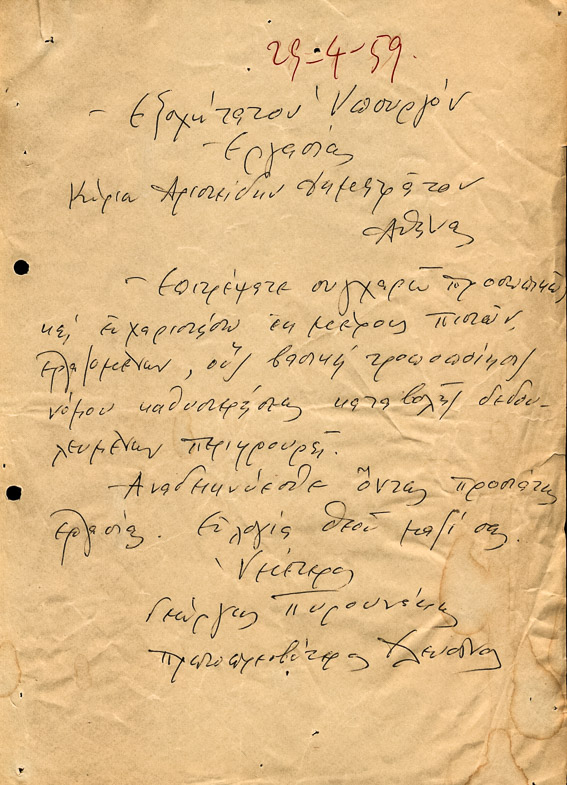 29-4-59.
- Εξοχώτατον Ὑπουργόν
- Εργασίας
Κύριον Αριστείδην Δημητράτον
Αθήνας
- Επιτρέψατε συγχαρῶ προσωπικῶς
καί εὐχαριστήσω ἐκ μέρους πιστῶν,
εργαζομένων, οὓς βασική τροποποίησις
νόμου καθυστερήσεως καταβολῆς δεδου-
λευμένων περιφρουρεῖ.
Αναδεικνύεσθε ὄντως προστάτης
εργασίας. Εὐλογία Θεοῦ μαζί σας.
Ὑμέτερος
Γεώργιος Πυρουνάκης
πρωτοπρεσβύτερος Ἐλευσῖνος